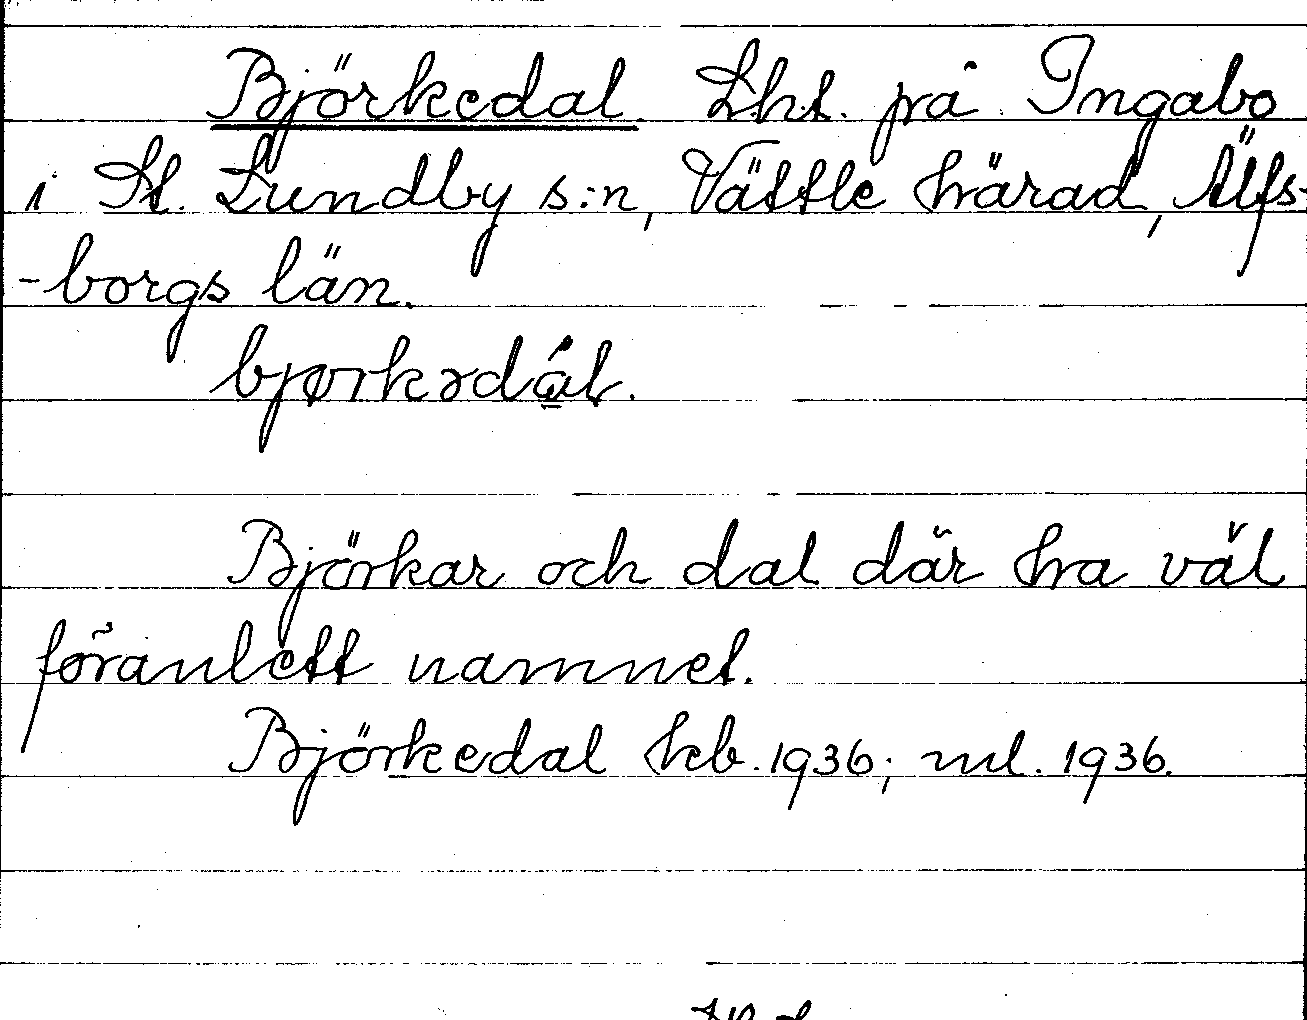 Björkedal. Lht. på Ingabo
i St. Lundby s:n, Vättle härad, Älfs-
-borgs län.
bjørkədál.
Björkar och dal där ha väl
föranlett namnet.
Björkedal hcb. 1936; ml. 1936.